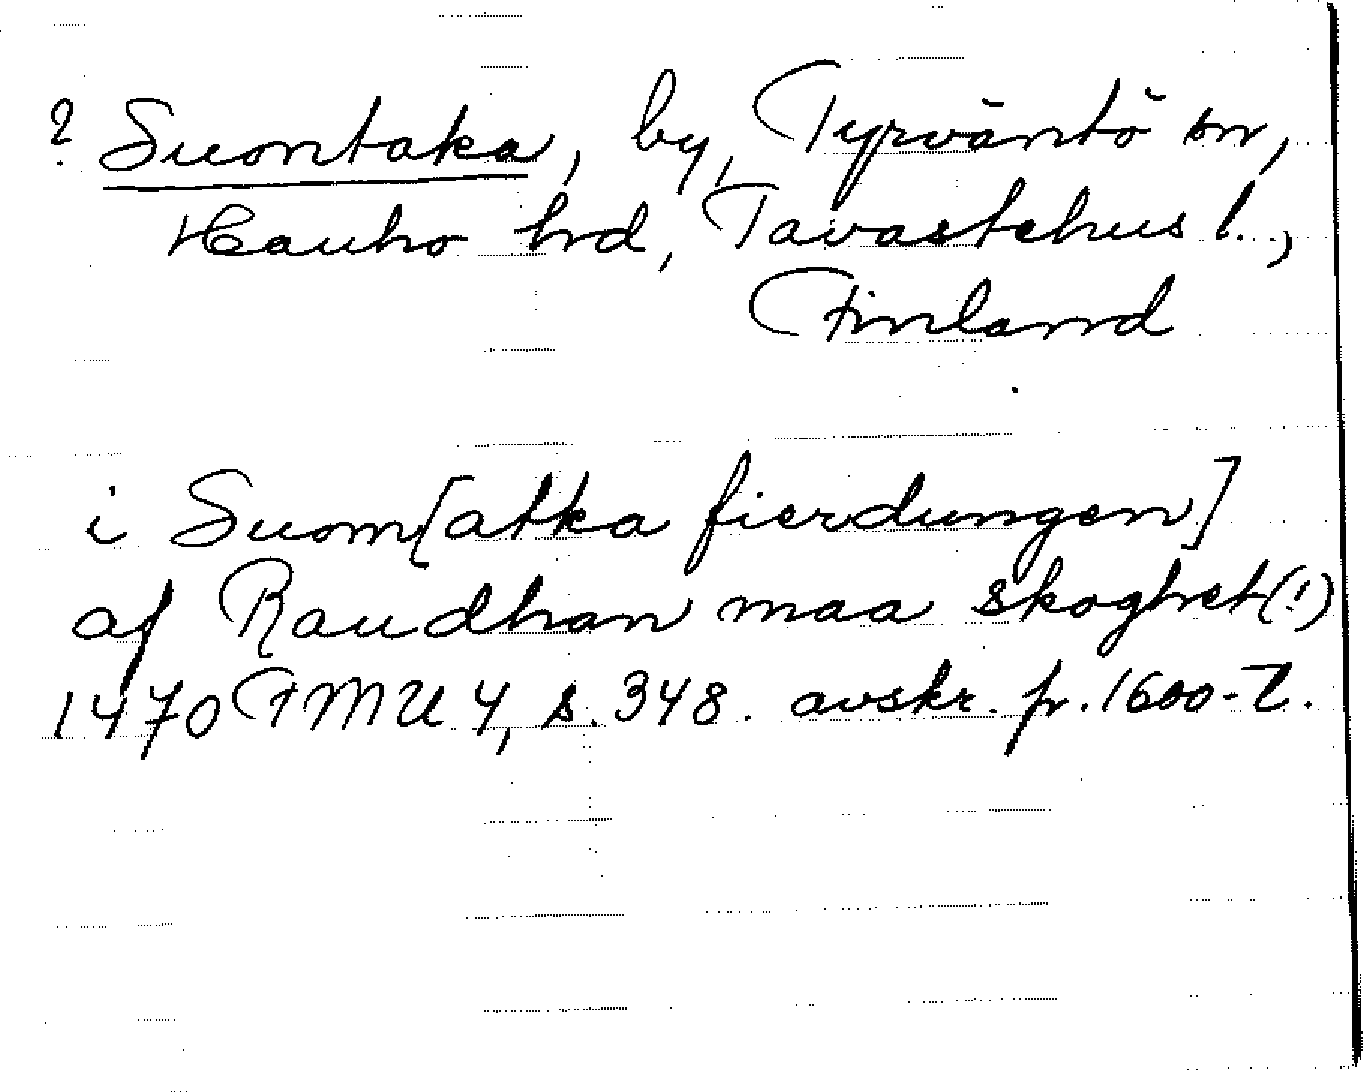 ? Suontaka, by, Tyrväntö sn,
Hauho hrd, Tavastehus l.,
Finland
i Suom[atka fierdungen]
af Raudhan maa skoghet(!)
1470 FMU 4, s. 348. avskr. fr. 1600-t.